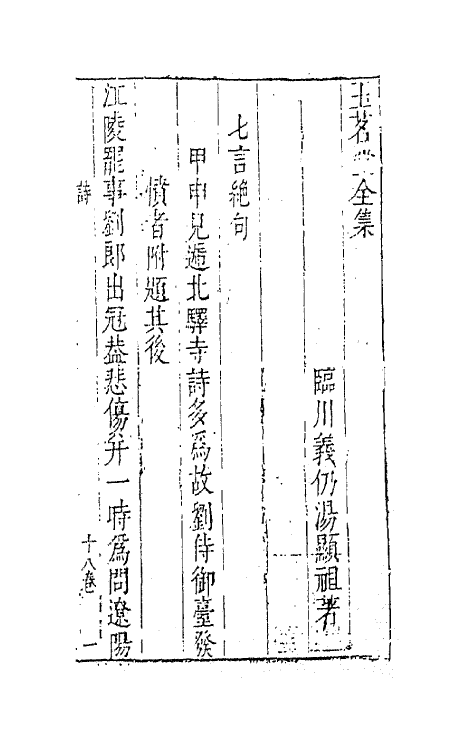 玉茗堂全集
臨川義仍湯顯祖著
七言絕句
甲申見遞北驛寺詩多爲故劉侍御臺發
憤者附題其後
江陵罷事劉郎出冠蓋悲傷并一時爲問遼陽
詩
十八卷
一